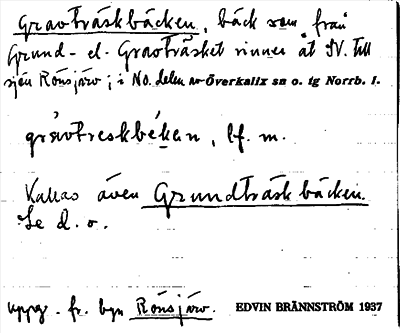 Gravträskbäcken, bäck som från
Grund- el. Gravträsket rinner åt SV. till
sjön Rönsjärv; i No. delen av Överkalix sn o. tg Norrb. l.
gråvtreskbékan, bf. m.
Kallas även Grundträskbäcken.
Se d. o.
uppg. fr. byn Rönsjärv. EDVIN BRÄNNSTRÖM 1937